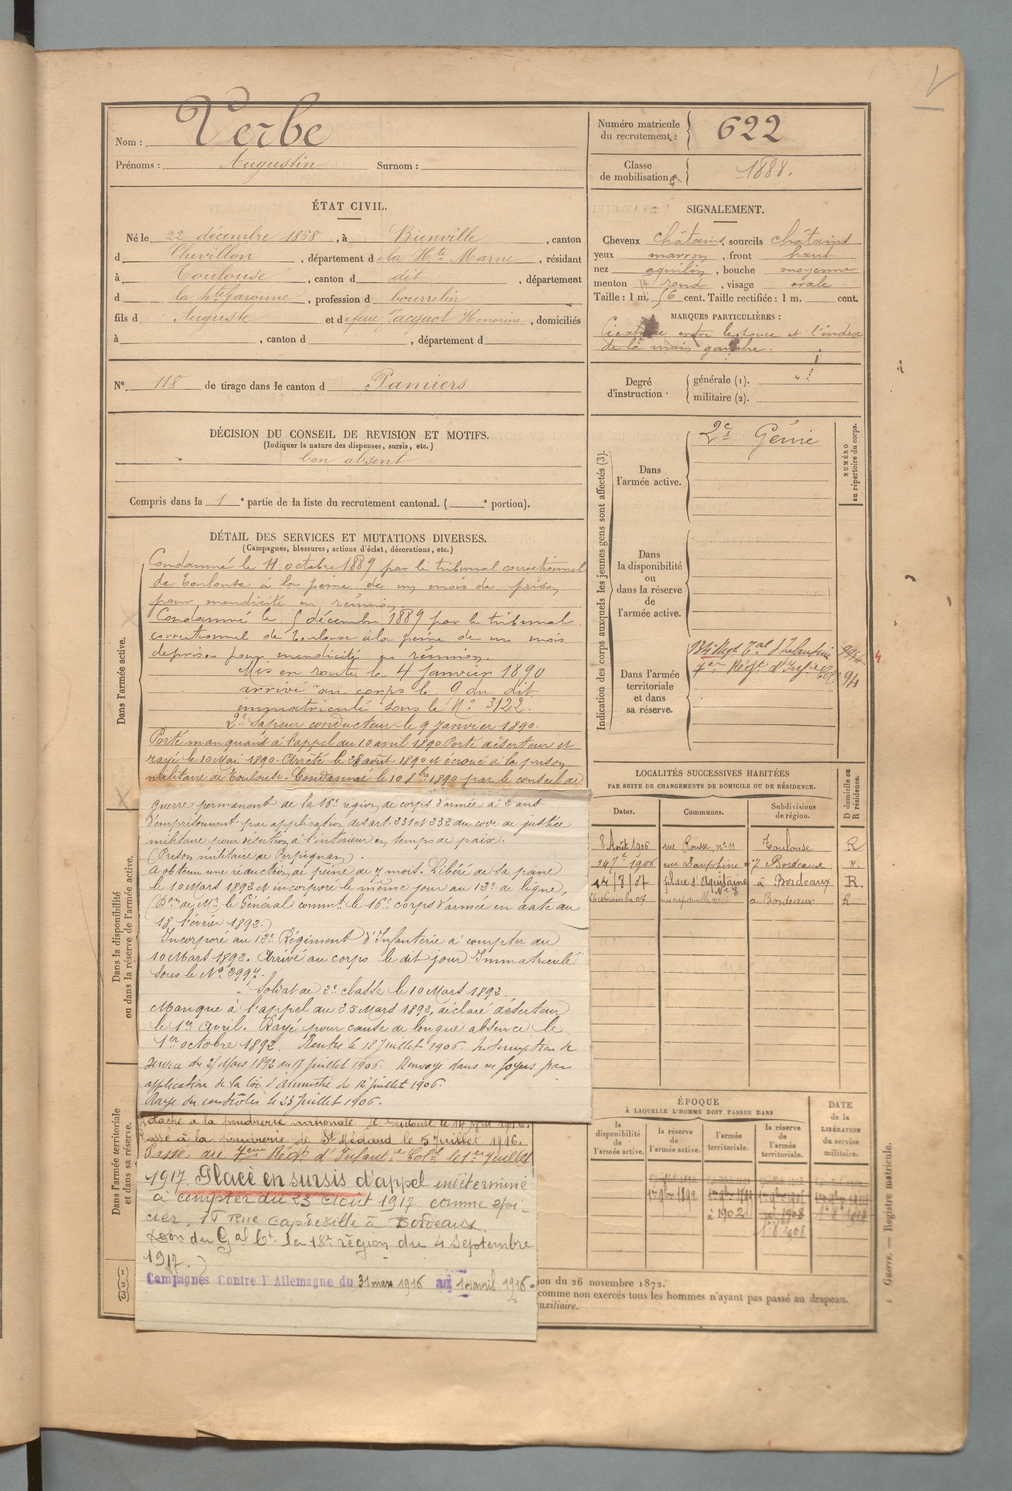 V
Nom : Verbe
Prénoms : Augustin Surnom :
Numéro matricule du recrutement : 622
Classe de mobilisation 1888.
ÉTAT CIVIL.
Né le 22 décembre 1868, à Bienville, canton
d Chevillon, département de la Hte Marne, résidant
à Toulouse, canton d dit, département
d la hte Garonne, profession d bourrelier
fils d Auguste et de feue Honorine, domiciliés
à , canton d , département d
N° 118 de tirage dans le canton d Pamiers
SIGNALEMENT.
Cheveux châtains, sourcils châtains
yeux marron, front haut
nez aquilin, bouche moyenne
menton rond, visage ovale
Taille : 1 m. 56 cent. Taille rectifiée : 1 m. cent.
MARQUES PARTICULIÈRES :
Cicatrice entre le pouce et l'index
de la main gauche.
Degré d'instruction. générale (1).
militaire (2).
DÉCISION DU CONSEIL DE REVISION ET MOTIFS.
(Indiquer la nature des dispenses, sursis, etc.)
bon absent
Compris dans la 1e partie de la liste du recrutement cantonal. ( e portion).
DÉTAIL DES SERVICES ET MUTATIONS DIVERSES.
(Campagnes, blessures, actions d'éclat, décorations, etc.)
Dans l'armée active.
Condamné le 11 octobre 1889 par le tribunal correctionnel
de Toulouse à la peine de un mois de prison
pour mendicité en réunion.
Condamné le 5 décembre 1889 par le tribunal
correctionnel de Toulouse à la peine de un mois
de prison pour mendicité en réunion.
Mis en route le 4 Janvier 1890
arrivé au corps le 9 du dit
immatriculé sous le N° 3122.
2e Sapeur conducteur le 9 janvier 1890
Porté manquant à l'appel du 10 avril 1890 Porté déserteur et
rayé le 10 Mai 1890. Arrêté le 28 août 1890 et écroué à la prison
militaire de Toulouse. Condamné le 10 8bre 1890 par le conseil de
guerre permanent de la 16e région de corps d'armée à 2 ans
d'emprisonnement par application des art. 231 et 232 du code de justice
militaire pour désertion à l'intérieur en temps de paix.
(Prison militaire de Perpignan).
A obtenu une réduction de peine de 7 mois. Libéré de sa peine
le 10 Mars 1892 et incorporé le même jour au 12e de ligne,
(Don de Mr le Général commt le 16e corps d'armée en date du
18 février 1892.)
Dans la disponibilité ou dans la réserve de l'armée active.
Incorporé au 12e Régiment d'Infanterie à compter du
10 Mars 1892. Arrivé au corps le dit jour Immatriculé
sous le N° 3997.
Soldat de 2e classe le 10 Mars 1892.
Manque à l'appel du 25 Mars 1892, déclaré déserteur
le 1er Avril. Rayé pour cause de longue absence le
1er octobre 1892. Rentré le 18 Juillet 1906. Interruption de
service du 2/ Mars 1892 au 17 juillet 1906. Renvoyé dans ses foyers par
application de la loi d'amnistie de 12 juillet 1906.
Rayé du contrôles le 23 Juillet 1906.
Dans l'armée territoriale et dans sa réserve.
Détaché à la poudrerie nationale de Toulouse le 14 Avril 1916.
Passé à la poudrerie de St Médard le 5 Juillet 1916.
Passé au 7eme Régt d'Infantie Colle le 1er Juillet
1917. Placé en sursis d'appel indéterminé
à compter du 23 Août 1917 comme épi-
cier, 15 Rue Capdeville à Bordeaux
Don du Gal Ct la 18e région du 4 Septembre
1917.)
Campagnes Contre l'Allemagne du 31 mars 1916 au 14 avril 1916.
Indication des corps auxquels les jeunes gens sont affectés (3).
NUMÉRO au répertoire du corps.
Dans l'armée active. 2e Génie
Dans la disponibilité ou dans la réserve de l'armée active.
Dans l'armée territoriale et dans sa réserve.
134e Régt Tal d'Infanterie
7er Régt d'Infie Colle
LOCALITÉS SUCCESSIVES HABITÉES
PAR SUITE DE CHANGEMENTS DE DOMICILE OU DE RÉSIDENCE.
Dates. Communes. Subdivisions de région. D domicile ou R résidence.
8 Août 1906 rue Rouxe n° 11 Toulouse R
24 7bre 1906 rue Dauphine Bordeaux R.
14/8/07 place d'Aquitaine N° 8 à Bordeaux R.
à Bordeaux R
ÉPOQUE
À LAQUELLE L'HOMME DOIT PASSER DANS
la disponibilité de l'armée active. la réserve de l'armée active. l'armée territoriale. la réserve de l'armée territoriale.
DATE de la LIBÉRATION du service militaire.
à 1902
ion du 26 novembre 1872.
comme non exercés tous les hommes n'ayant pas passé au drapeau.
auxiliaire.
Guerre. — Registre matricule.